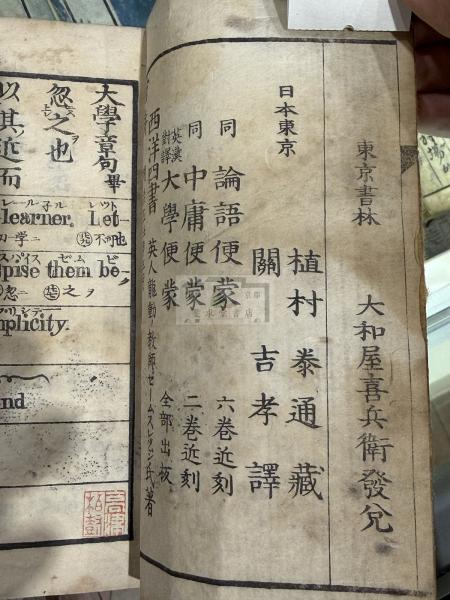 以其近而
忽之也
大學章句畢
learner. Let
レールネル レット
spise them be-
スパイス ゼム ビ
mplicity.
nd
西洋四書 英人龍動ノ教師ゼームス氏著
英漢對譯 大學便蒙 全部出板
同 中庸便蒙 二巻近刻
同 論語便蒙 六巻近刻
日本東京
關吉孝譯
植村泰通藏
東京書林 大和屋喜兵衛發兌